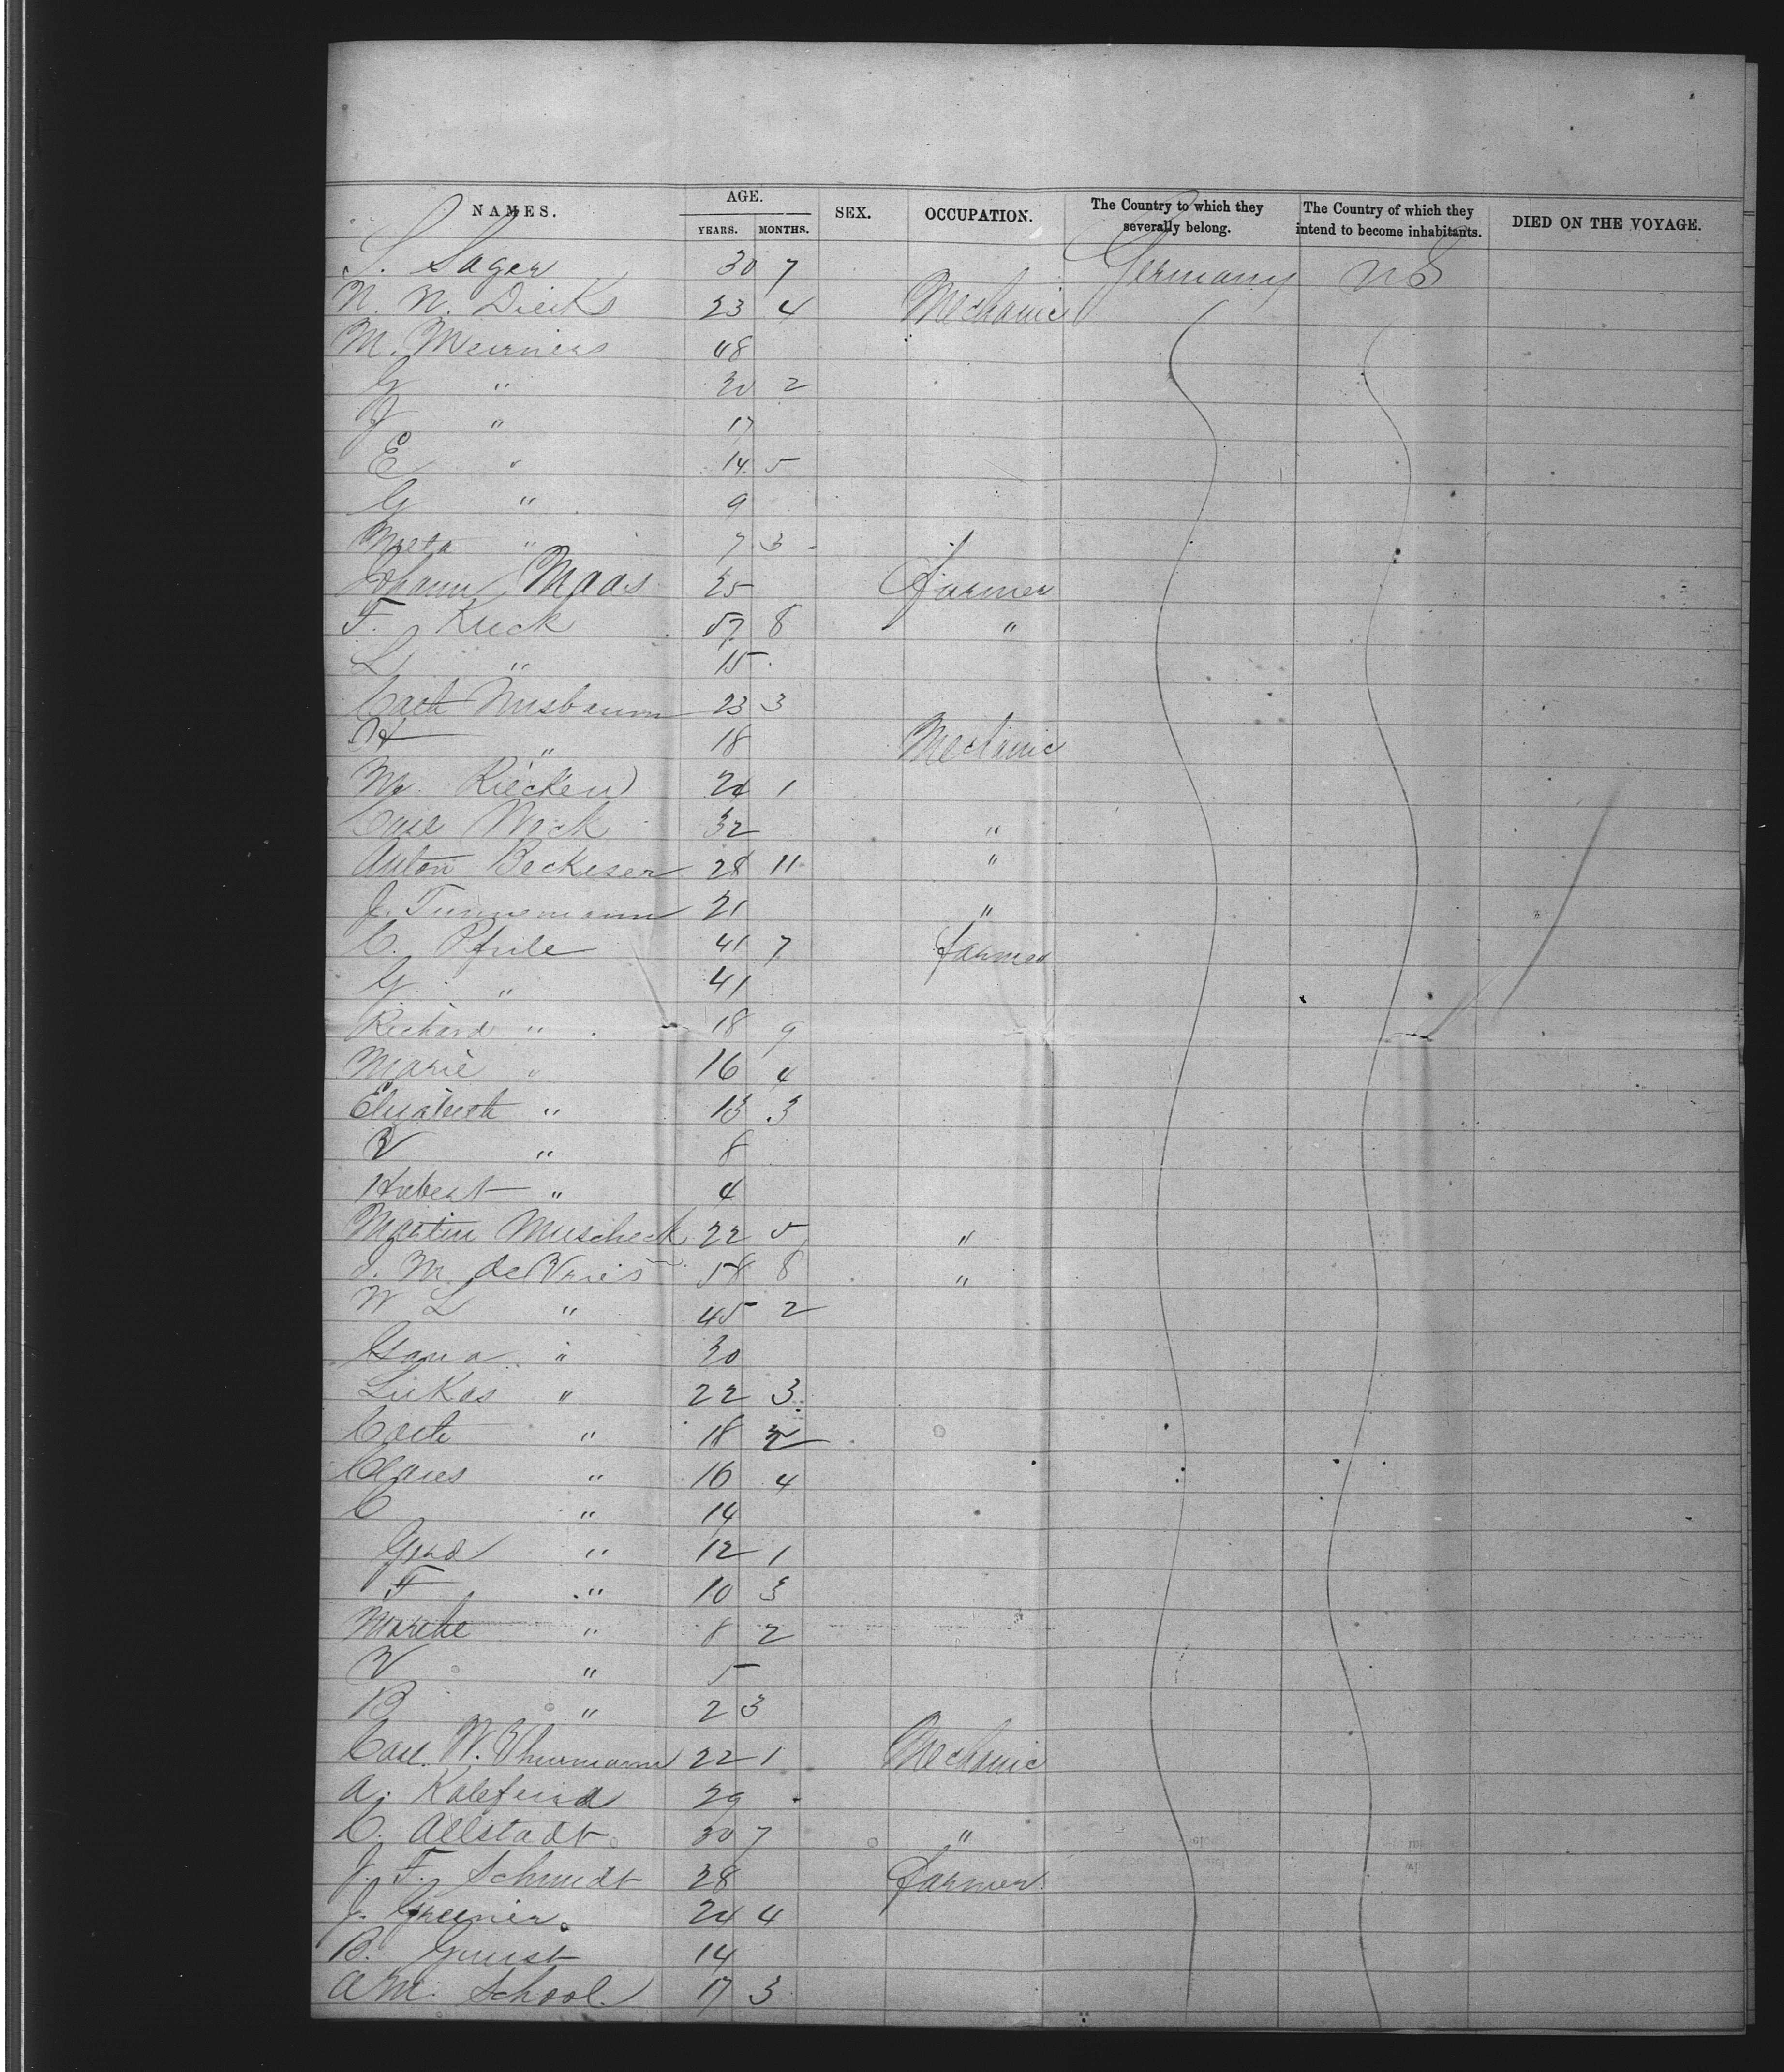 NAMES. AGE. SEX. OCCUPATION. The Country to which they severally belong. The Country of which they intend to become inhabitants. DIED ON THE VOYAGE.
YEARS. MONTHS.
S. Sager 30 7 Germany US
N. N. Dierks 23 4 Mechanic
M. Meirners 48
G " 20 2
J " 17
E " 14 5
G " 9
Meta " 7 3
Johann Maas 25 Farmer
F. Kuck 57 8 "
L " 15
Cath Nusbaum 23 3
H " 18 Mechanic
M. Riecken 24 1
Carl Wick 32 "
Anton Beckeser 28 11 "
J. Tunnemann 21 "
C. Pfeile 41 7 Farmer
G " 41
Richard " 18 9
Marie " 16 4
Elisabeth " 13 3
V " 8
Hubert " 4
Martin Muscheck 22 5 "
J. M. de Vries 58 8 "
W L " 45 2
" 30
Lukas " 22 3
Cath " 18 2
Claus " 16 4
C " 14
Gerd " 12 1
F " 10 3
" 8 2
V " 5
B " 2 3
Carl W. Thurmann 22 1 Mechanic
A. 29
C. Allstadt 30 7 "
J. F. Schmidt 28 Farmer
J. Greener 24 4
B. 14
A M. School 17 3